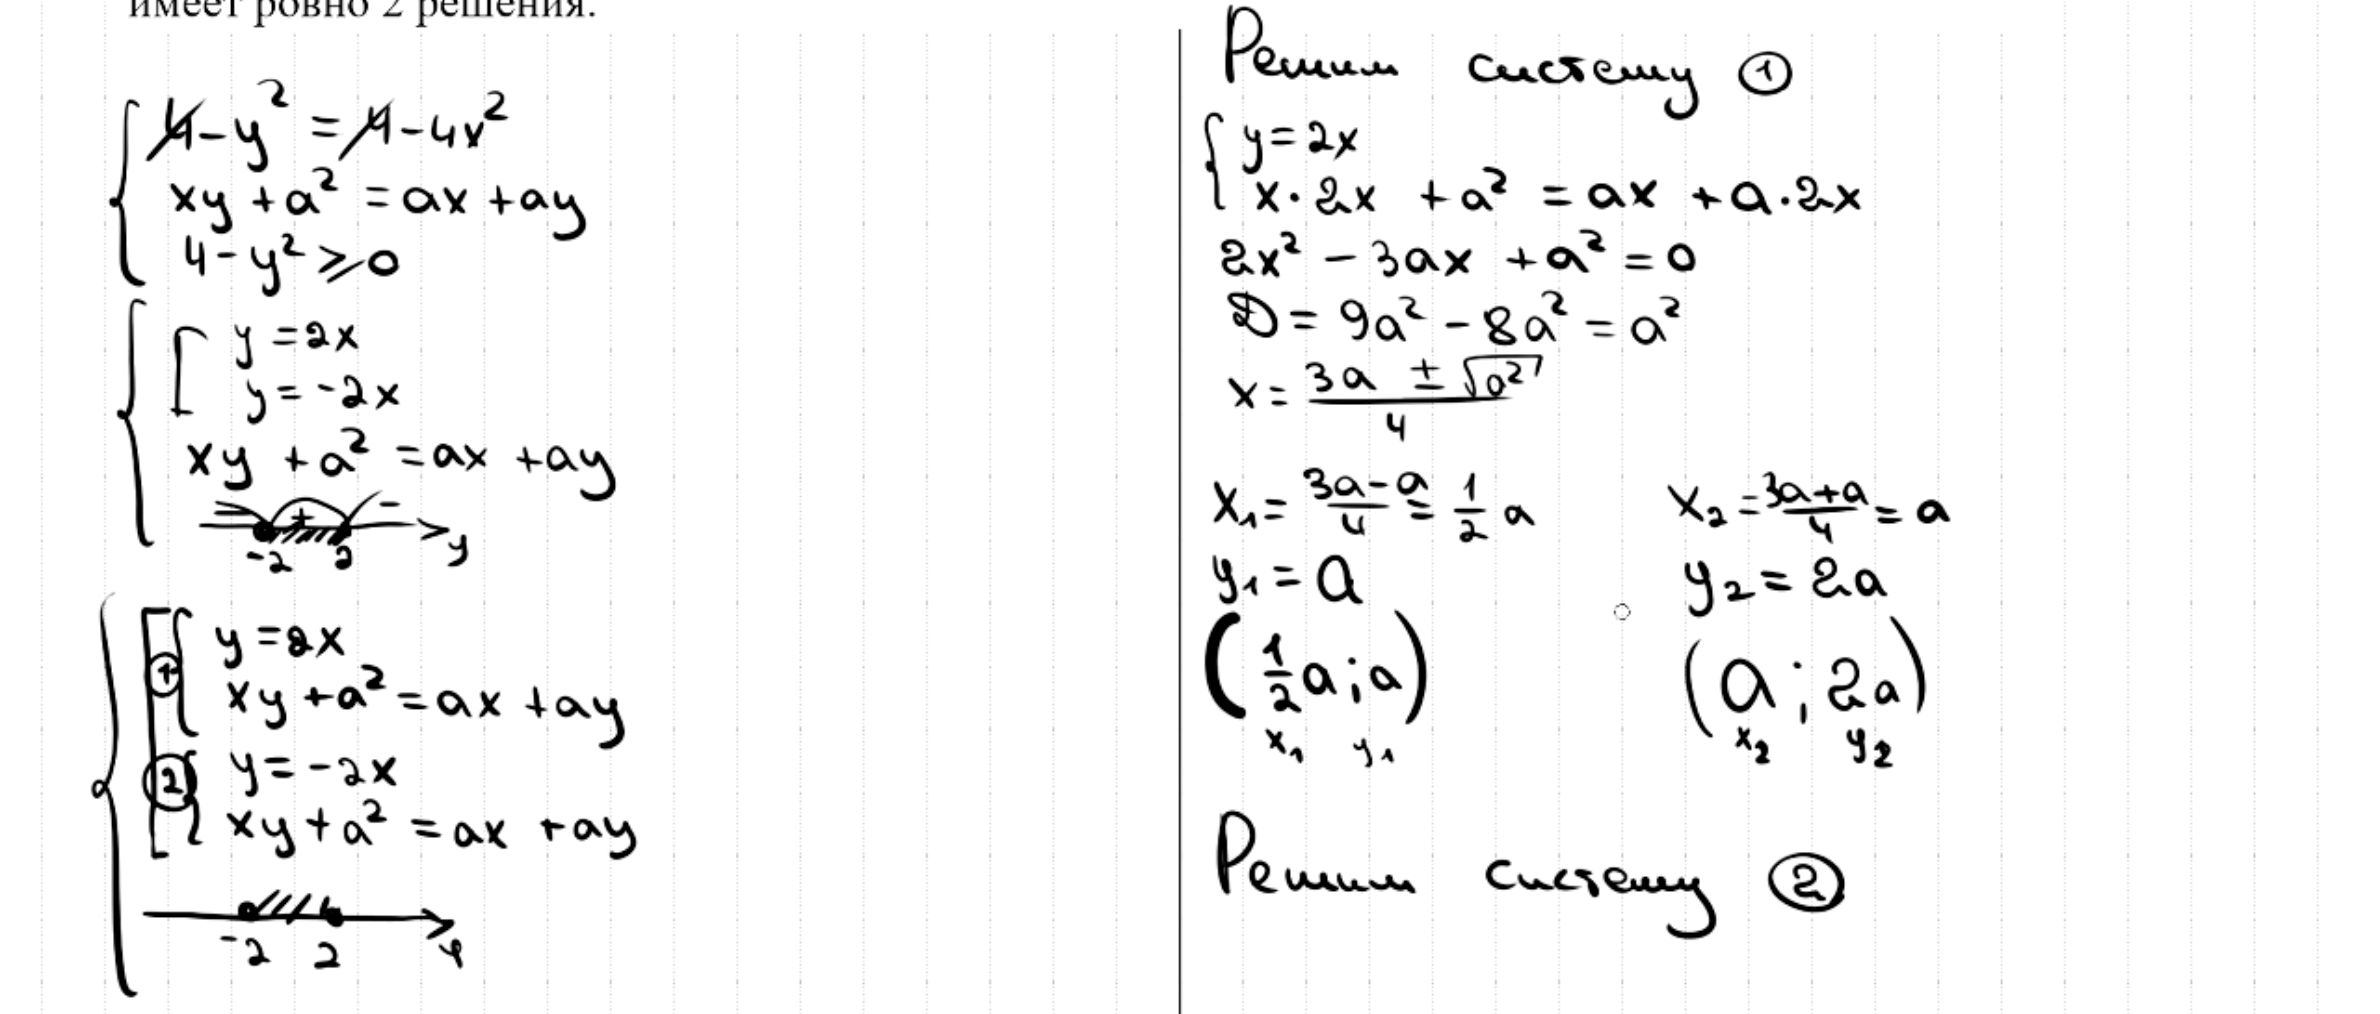 имеет ровно 2 решения.
4-y² = 4-4x²
xy + a² = ax + ay
4-y² ⩾ 0
y = 2x
y = -2x
xy + a² = ax + ay
- + -
-2 2 y
① y = 2x
xy + a² = ax + ay
② y = -2x
xy + a² = ax + ay
-2 2 y
Решим систему ①
y = 2x
x·2x + a² = ax + a·2x
2x² - 3ax + a² = 0
D = 9a² - 8a² = a²
x = (3a ± √a²)/4
x₁ = (3a-a)/4 = 1/2 a x₂ = (3a+a)/4 = a
y₁ = a y₂ = 2a
(1/2 a; a) (a; 2a)
x₁ y₁ x₂ y₂
Решим систему ②